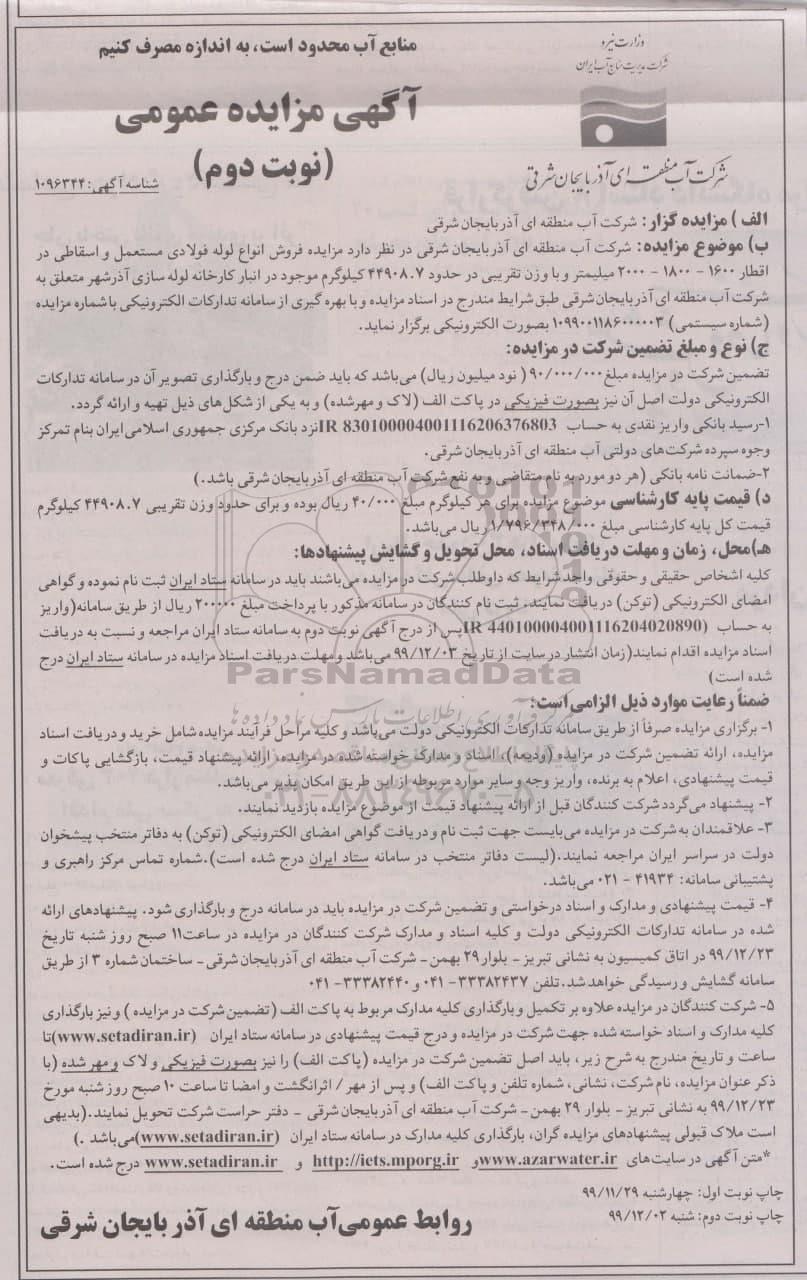 منابع آب محدود است، به اندازه مصرف کنیم
وزارت نیرو
شرکت مدیریت منابع آب ایران
شرکت آب منطقه ای آذربایجان شرقی
آگهی مزایده عمومی
(نوبت دوم)
شناسه آگهی: ۱۰۹۶۳۴۴
الف ) مزایده گزار: شرکت آب منطقه ای آذربایجان شرقی
ب) موضوع مزایده: شرکت آب منطقه ای آذربایجان شرقی در نظر دارد مزایده فروش انواع لوله فولادی مستعمل و اسقاطی در
اقطار ۱۶۰۰ - ۱۸۰۰ - ۲۰۰۰ میلیمتر و با وزن تقریبی در حدود ۴۴۹۰۸.۷ کیلوگرم موجود در انبار کارخانه لوله سازی آذرشهر متعلق به
شرکت آب منطقه ای آذربایجان شرقی طبق شرایط مندرج در اسناد مزایده و با بهره گیری از سامانه تدارکات الکترونیکی با شماره مزایده
(شماره سیستمی) ۱۰۹۹۰۰۱۱۸۶۰۰۰۰۰۳ بصورت الکترونیکی برگزار نماید.
ج) نوع و مبلغ تضمین شرکت در مزایده:
تضمین شرکت در مزایده مبلغ ۹۰/۰۰۰/۰۰۰ ( نود میلیون ریال) می‌باشد که باید ضمن درج و بارگذاری تصویر آن در سامانه تدارکات
الکترونیکی دولت اصل آن نیز بصورت فیزیکی در پاکت الف (لاک و مهرشده) و به یکی از شکل‌های ذیل تهیه و ارائه گردد.
۱-رسید بانکی واریز نقدی به حساب IR 830100004001116206376803نزد بانک مرکزی جمهوری اسلامی‌ایران بنام تمرکز
وجوه سپرده شرکت‌های دولتی آب منطقه ای آذربایجان شرقی.
۲-ضمانت نامه بانکی (هر دو مورد به نام متقاضی و به نفع شرکت آب منطقه ای آذربایجان شرقی باشد.)
د) قیمت پایه کارشناسی موضوع مزایده برای هر کیلوگرم مبلغ ۴۰/۰۰۰ ریال بوده و برای حدود وزن تقریبی ۴۴۹۰۸.۷ کیلوگرم
قیمت کل پایه کارشناسی مبلغ ۱/۷۹۶/۳۴۸/۰۰۰ ریال می‌باشد.
هـ)محل، زمان و مهلت دریافت اسناد، محل تحویل و گشایش پیشنهادها:
کلیه اشخاص حقیقی و حقوقی واجد شرایط که داوطلب شرکت در مزایده می‌باشند باید در سامانه ستاد ایران ثبت نام نموده و گواهی
امضای الکترونیکی (توکن) دریافت نمایند. ثبت نام کنندگان در سامانه مذکور با پرداخت مبلغ ۲۰۰۰۰۰ ریال از طریق سامانه(واریز
به حساب IR 440100004001116204020890)پس از درج آگهی نوبت دوم به سامانه ستاد ایران مراجعه و نسبت به دریافت
اسناد مزایده اقدام نمایند(زمان انتشار در سایت از تاریخ ۹۹/۱۲/۰۳ می‌باشد و مهلت دریافت اسناد مزایده در سامانه ستاد ایران درج
شده است)
ضمناً رعایت موارد ذیل الزامی‌است:
۱- برگزاری مزایده صرفاً از طریق سامانه تدارکات الکترونیکی دولت می‌باشد و کلیه مراحل فرآیند مزایده شامل خرید و دریافت اسناد
مزایده، ارائه تضمین شرکت در مزایده (ودیعه)، اسناد و مدارک خواسته شده در مزایده، ارائه پیشنهاد قیمت، بازگشایی پاکات و
قیمت پیشنهادی، اعلام به برنده، واریز وجه و سایر موارد مربوطه از این طریق امکان پذیر می‌باشد.
۲- پیشنهاد می‌گردد شرکت کنندگان قبل از ارائه پیشنهاد قیمت از موضوع مزایده بازدید نمایند.
۳- علاقمندان به شرکت در مزایده می‌بایست جهت ثبت نام و دریافت گواهی امضای الکترونیکی (توکن) به دفاتر منتخب پیشخوان
دولت در سراسر ایران مراجعه نمایند.(لیست دفاتر منتخب در سامانه ستاد ایران درج شده است).شماره تماس مرکز راهبری و
پشتیبانی سامانه: ۴۱۹۳۴ - ۰۲۱ می‌باشد.
۴- قیمت پیشنهادی و مدارک و اسناد درخواستی و تضمین شرکت در مزایده باید در سامانه درج و بارگذاری شود. پیشنهادهای ارائه
شده در سامانه تدارکات الکترونیکی دولت و کلیه اسناد و مدارک شرکت کنندگان در مزایده در ساعت۱۱ صبح روز شنبه تاریخ
۹۹/۱۲/۲۳ در اتاق کمیسیون به نشانی تبریز - بلوار ۲۹ بهمن - شرکت آب منطقه ای آذربایجان شرقی - ساختمان شماره ۳ از طریق
سامانه گشایش و رسیدگی خواهد شد.تلفن ۳۳۳۸۲۴۳۷- ۰۴۱ و ۳۳۳۸۲۴۴۰- ۰۴۱
۵- شرکت کنندگان در مزایده علاوه بر تکمیل و بارگذاری کلیه مدارک مربوط به پاکت الف (تضمین شرکت در مزایده ) و نیز بارگذاری
کلیه مدارک و اسناد خواسته شده جهت شرکت در مزایده و درج قیمت پیشنهادی در سامانه ستاد ایران (www.setadiran.ir)تا
ساعت و تاریخ مندرج به شرح زیر، باید اصل تضمین شرکت در مزایده (پاکت الف) را نیز بصورت فیزیکی و لاک و مهر شده (با
ذکر عنوان مزایده، نام شرکت، نشانی، شماره تلفن و پاکت الف) و پس از مهر / اثرانگشت و امضا تا ساعت ۱۰ صبح روز شنبه مورخ
۹۹/۱۲/۲۳ به نشانی تبریز - بلوار ۲۹ بهمن - شرکت آب منطقه ای آذربایجان شرقی - دفتر حراست شرکت تحویل نمایند.(بدیهی
است ملاک قبولی پیشنهادهای مزایده گران، بارگذاری کلیه مدارک در سامانه ستاد ایران (www.setadiran.ir)می‌باشد .)
*متن آگهی در سایت‌های www.azarwater.irو http://iets.mporg.ir و www.setadiran.ir درج شده است.
چاپ نوبت اول: چهارشنبه ۹۹/۱۱/۲۹
چاپ نوبت دوم: شنبه ۹۹/۱۲/۰۲
روابط عمومی‌آب منطقه ای آذربایجان شرقی
ParsNamadData